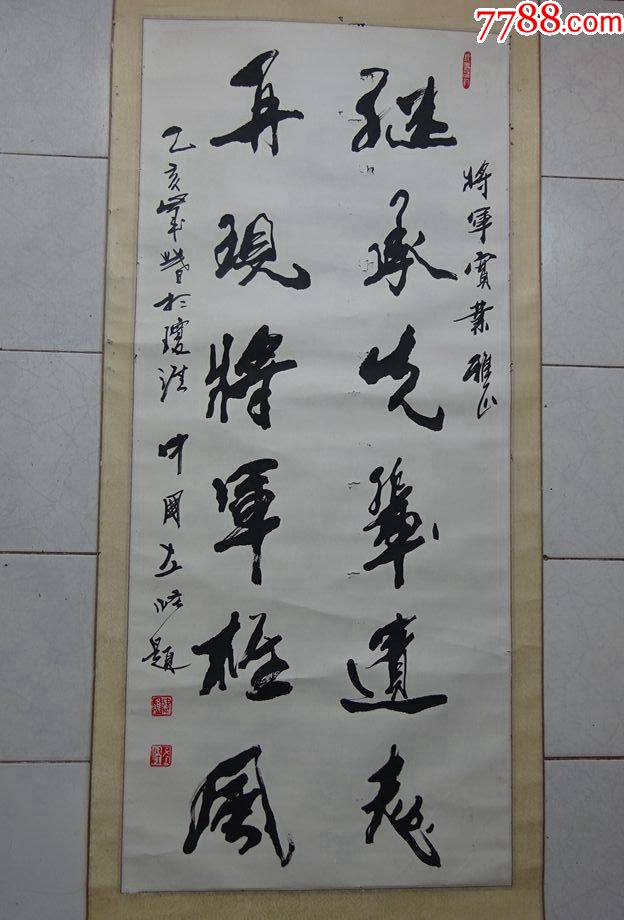 7788.com
将軍實業雅正
继承先輩遺志
再現將軍雄風
乙亥年 於瓊涯 中國 題